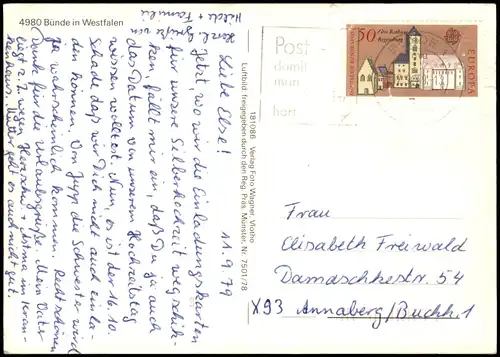 4980 Bünde in Westfalen
11.9.79
Liebe Else!
Jetzt, wo wir die Einladungskarten
für unsere Silberhochzeit wegschik-
ken, fällt mir ein, daß Du ja auch
das Datum von unserem Hochzeitstag
wissen wolltest. Nun, es ist der 16.10.
Schade, daß wir Dich nicht auch einla-
den können. Von Jupp die Schwester wird
ja wahrscheinlich kommen. Recht schönen
Dank für die Urlaubsgrüße. Mein Vater
liegt z.Z. wegen Herzschw. + Astma im Kran-
kenhaus. Mutter geht es auch nicht gut.
Herzl. Grüße von
Hilde + Familie
181086 Verlag Foto Wagner, Vlotho
Luftbild freigegeben durch den Reg. Präs. Münster, Nr. 7501/78
Post
damit
man
50
Altes Rathaus
Regensburg
DEUTSCHE BUNDESPOST
EUROPA
CEPT
Frau
Elisabeth Freiwald
Damaschkestr. 54
X93 Annaberg/Buchh. 1